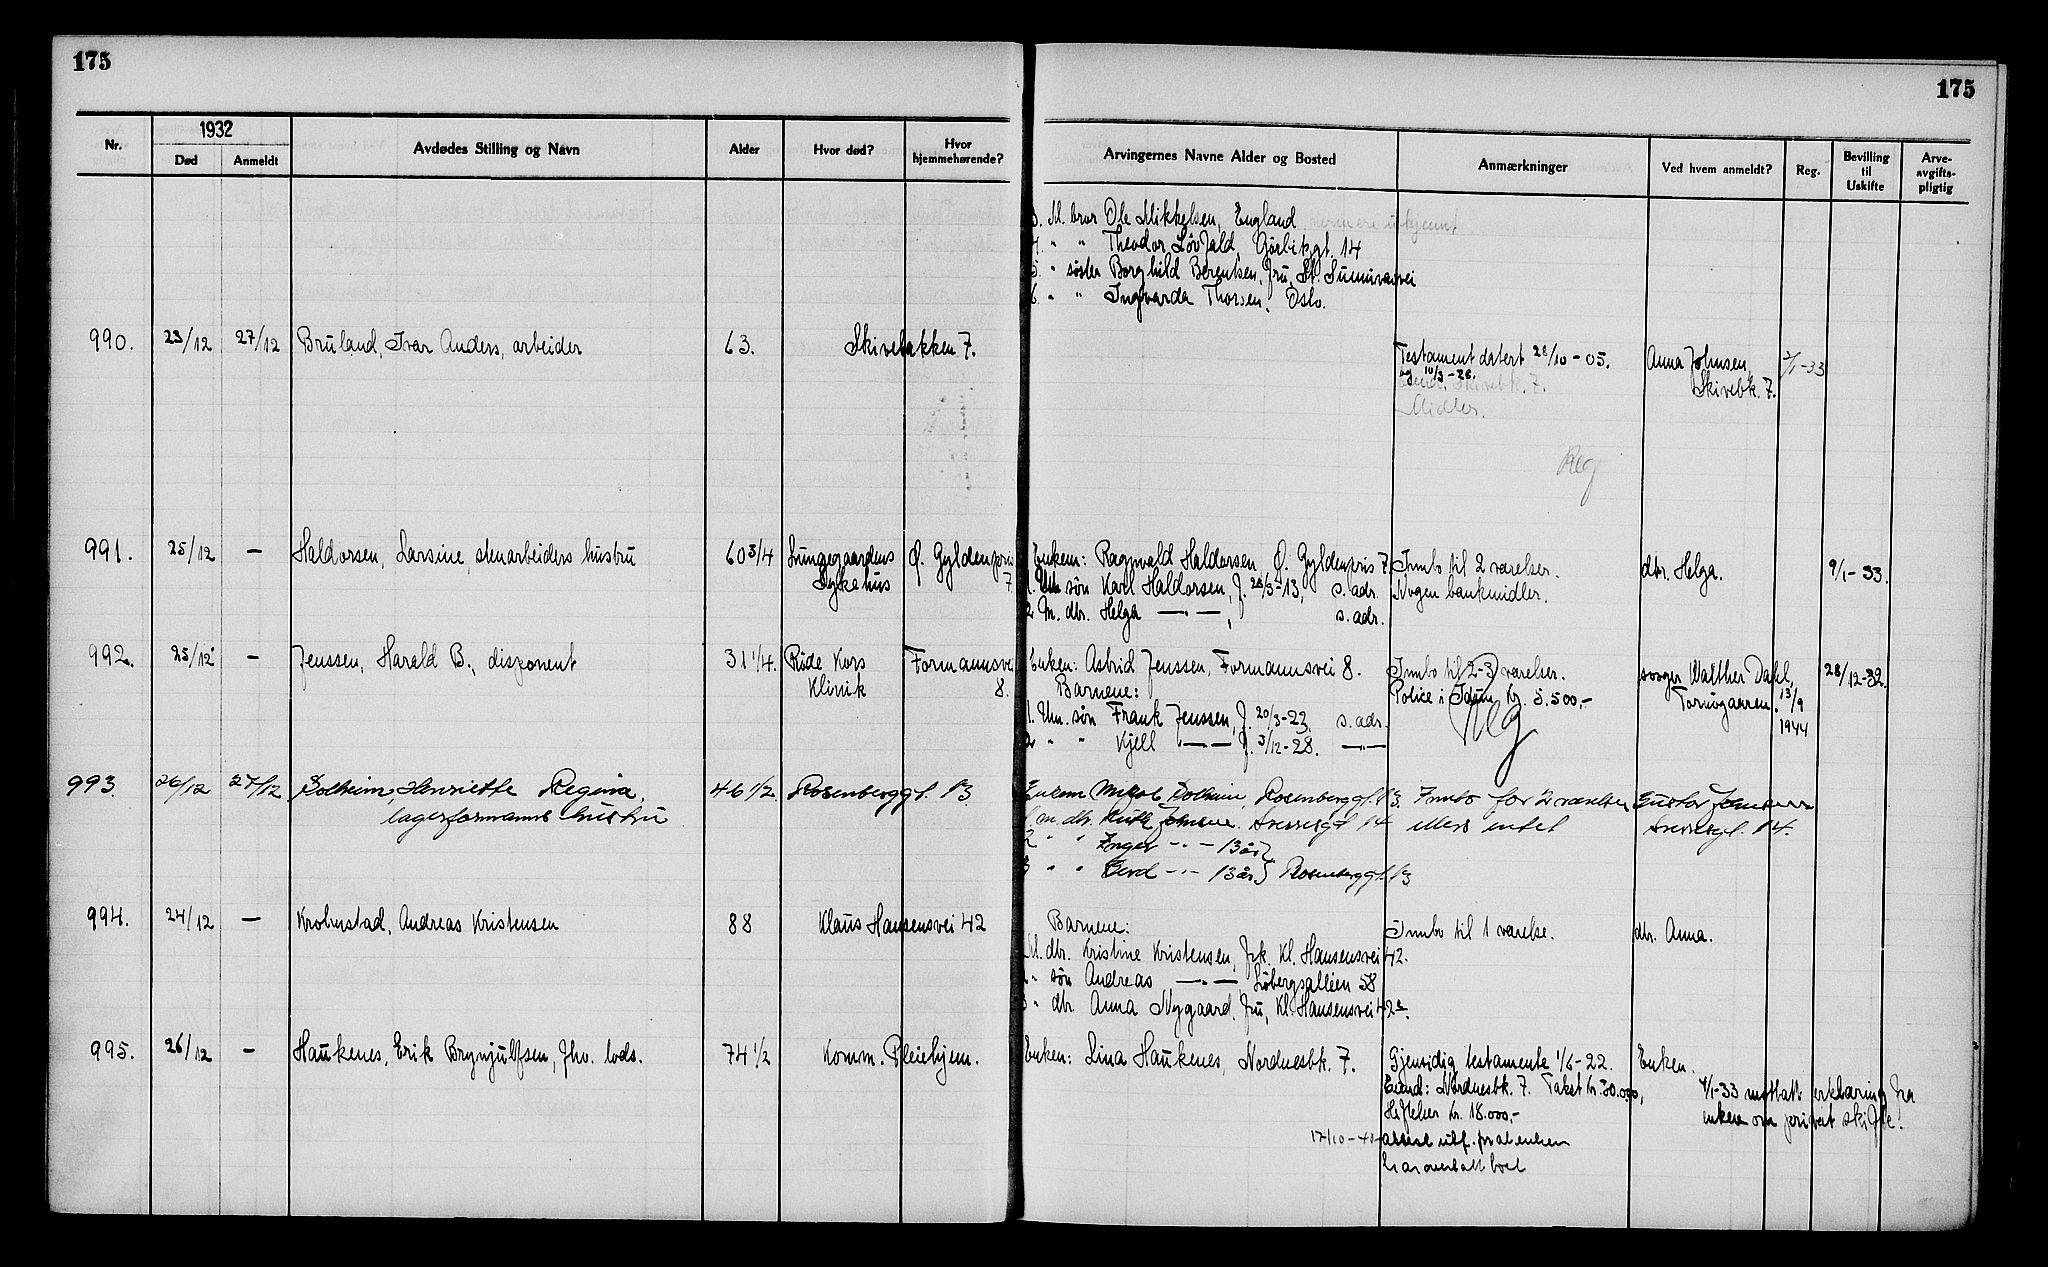 175
175
1932
Nr.
Død
Anmeldt
Avdødes Stilling og Navn
Alder
Hvor død?
Hvor hjemmehørende?
Arvingernes Navne Alder og Bosted
Anmærkninger
Ved hvem anmeldt?
Reg.
Bevilling til Uskifte
Arve-avgifts-pligtig
3. M. bror Ole Mikkelsen, England
4. " " Theodor Løvfald,
5. " søster Borghild Berentsen, fru, St. Sunnivasvei
6. " " Ingvarda Thorsen, Oslo.
990. 23/12 27/12 Bruland, Ivar Anders, arbeider 63. Skivebakken 7.
Testament datert 28/10-05. Anna Johnsen, 2/1-33
og 10/3-28. Skivebk. 7.
Eiend. Skivebk. 7.
Midler.
Reg
991. 25/12 — Haldorsen, Larsine, stenarbeiders hustru 60 3/4 Lungegaardens Ø. Gyldenpris Enkem: Ragnvald Haldorsen, Ø. Gyldenpris 7 Innbo til 2 værelser. dtr. Helga. 9/1-33.
Sykehus 7 1. Um søn Karl Haldorsen, f. 28/3-13, s. adr. Nogen bankmidler.
2 M. dtr. Helga —"—, s. adr.
992. 25/12 — Jenssen, Harald B., disponent 31 1/4. Røde Kors Formannsvei Enken: Astrid Jenssen, Formannsvei 8. Innbo til 2-3 værelser. sorger Walther Dahl, 28/12-32.
Klinik 8. Barnene: Police i Idun kr. 5.500,- Torvgaaren. 13/9
1. Um. søn Frank Jenssen, f. 20/3-23. s. adr. 1944
2 " " Kjell —"— f. 3/12-28. —"—
Reg
993 26/12 27/12 Solheim, Henriette Regina, 46 1/2 Rosenberggt. 13 Enkem Solheim Rosenberggt. 13. Innbo for 2 værelser Gustav
lagerformanns hustru 1 m. dtr. Ruth Sverresgt 14 ellers intet Sverresgt. 14.
2 " " Inger -"- 13 år
3 " " Gerd -"- 13 år } Rosenberggt. 13
994. 24/12 — Krohnstad, Andreas Kristensen 88 Klaus Hansensvei 42 Barnene: Innbo til 1 værelse. dtr. Anna.
1 M. dtr. Kristine Kristensen, frk. Kl. Hansensvei 42.
2 " søn Andreas —"— Løbergsalleen 58
3 " dtr. Anna Nygaard, fru, Kl. Hansensvei 42a.
995. 26/12 — Haukenes, Erik Brynjulfsen, fhv. lods. 74 1/2 Komm. Pleiehjem. Enken: Lina Haukenes, Nordnesbk. 7. Gjensidig testamente 1/6-22. Enken.
Eiend: Nordnesbk. 7. Takst kr. 30.000, 4/1-33 mottatt erklæring fra
Heftelser kr. 18.000,- enken om privat skifte!
17/10-40 attest utf. for at enken
har overtatt boet